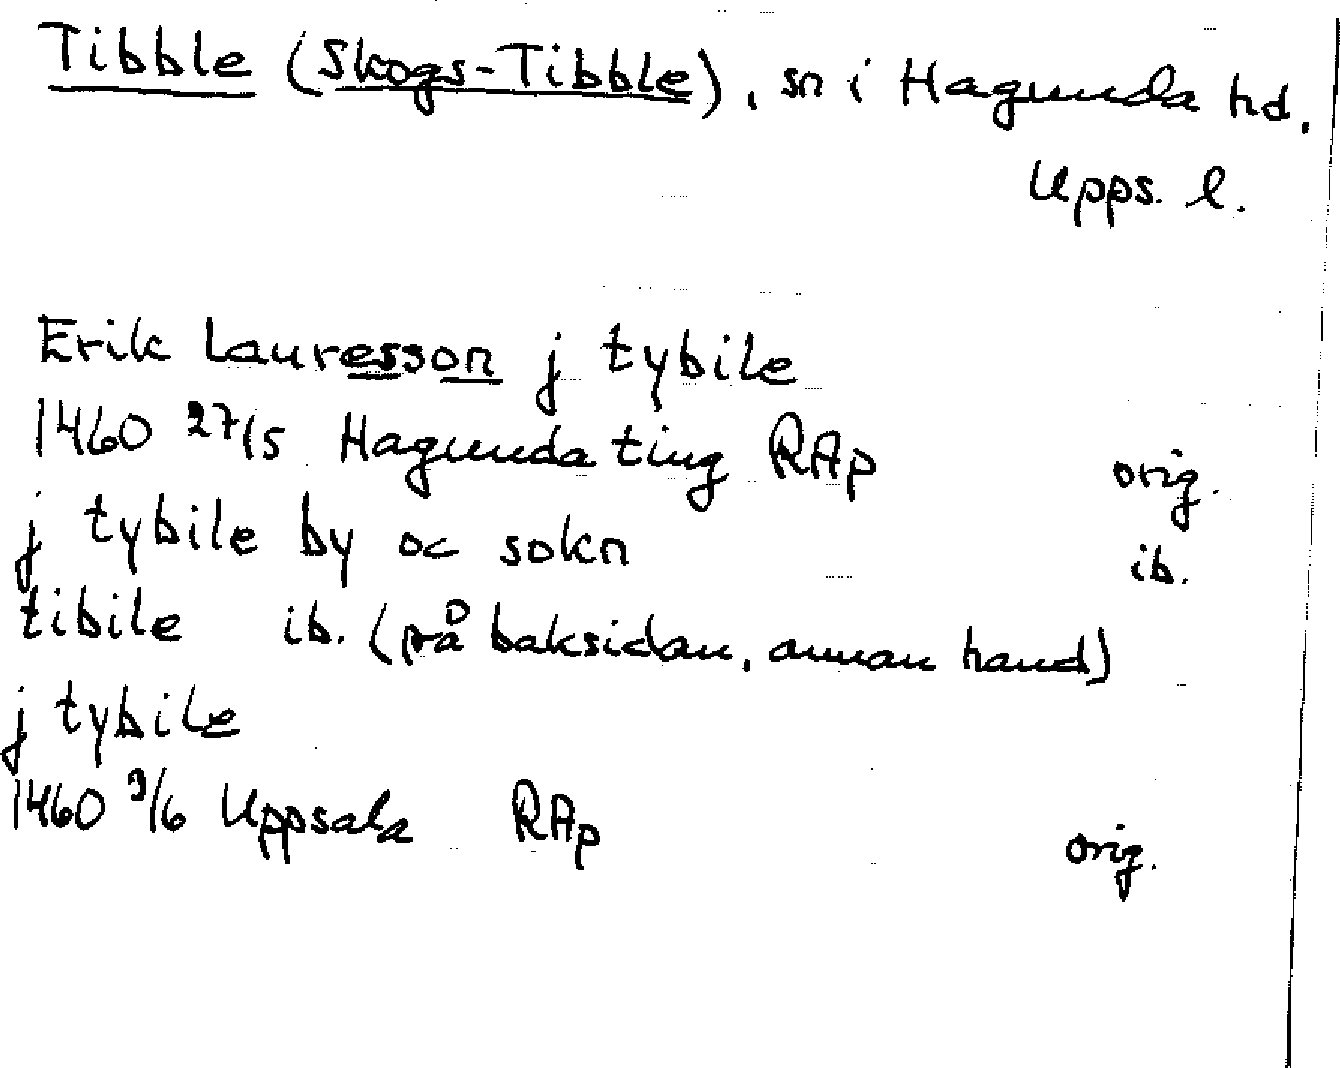 Tibble (Skogs-Tibble), sn i Hagunda hd.
Upps. l.
Erik Lauresson j tybile
1460 27/5 Hagunda ting RAp orig.
j tybile by oc sokn ib.
tibile ib. (på baksidan, annan hand)
j tybile
1460 3/6 Uppsala RAp orig.